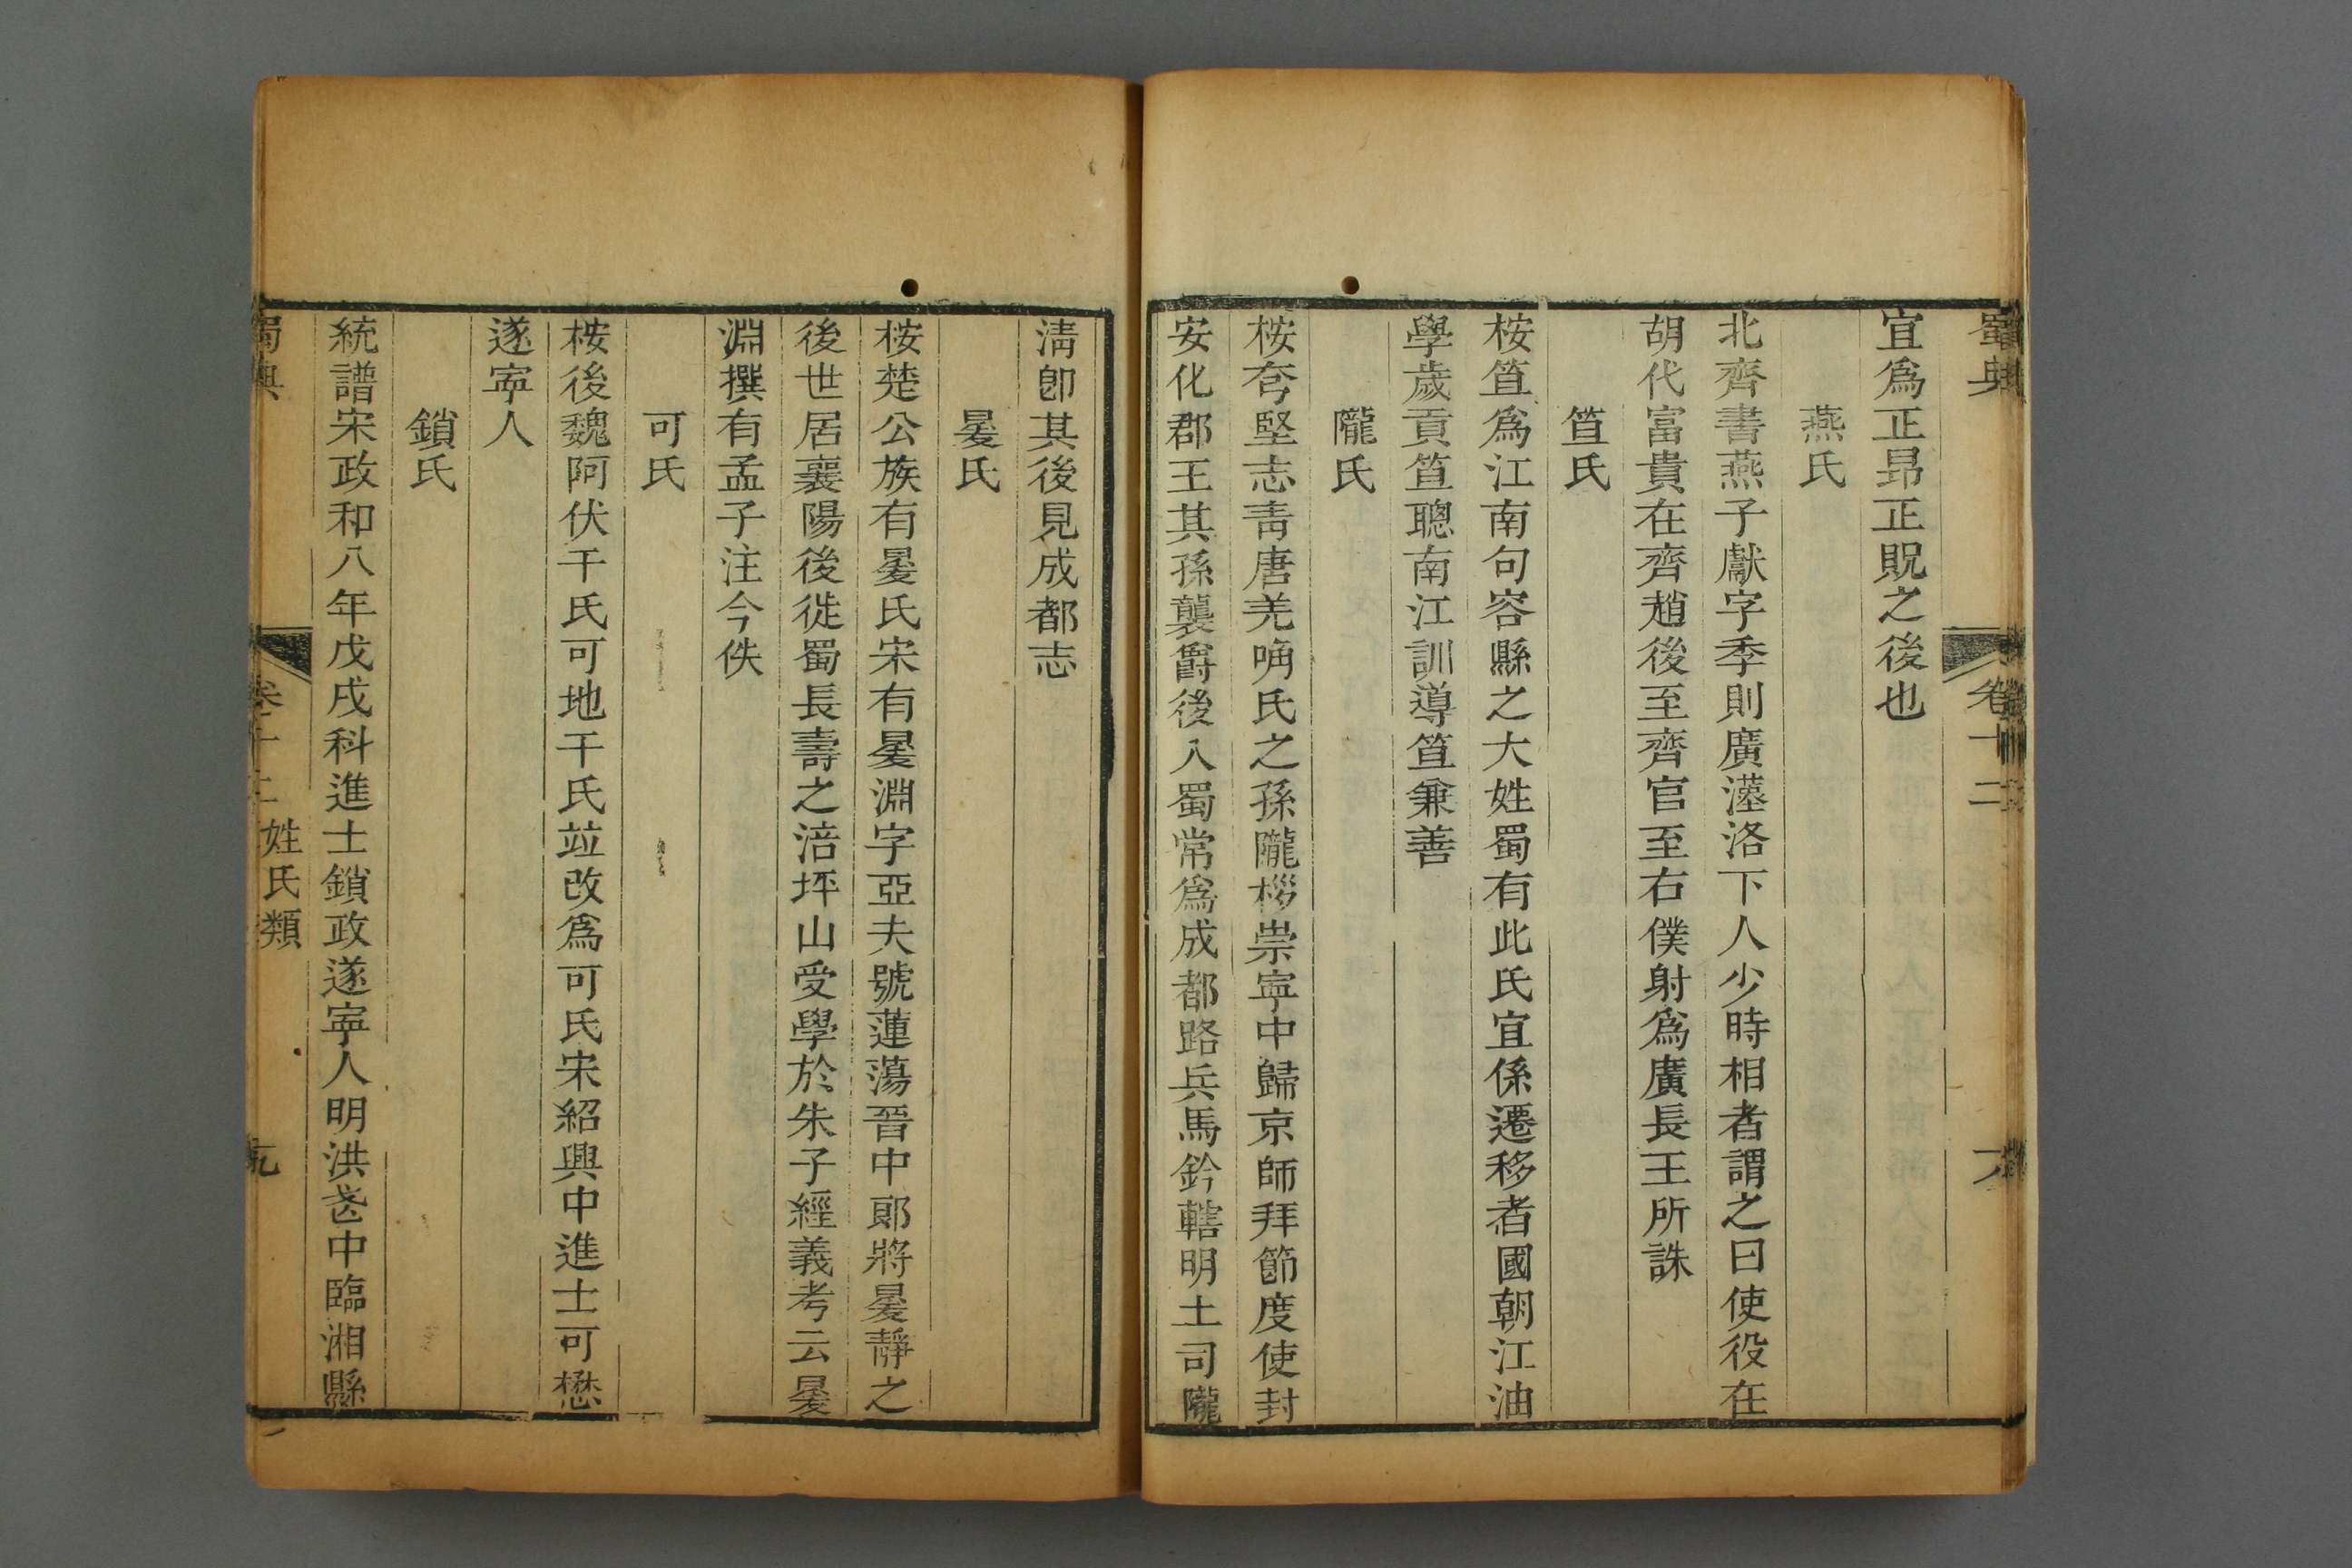 蜀典
卷十二
宜爲正昂正貺之後也
燕氏
北齊書燕子獻字季則廣漢洛下人少時相者謂之曰使役在
胡代富貴在齊趙後至齊官至右僕射爲廣長王所誅
笪氏
桉笪爲江南句容縣之大姓蜀有此氏宜係遷移者國朝江油
學歲貢笪聰南江訓導笪兼善
隴氏
桉夸堅志靑唐羌唃氏之孫隴桚崇寜中歸京師拜節度使封
安化郡王其孫襲爵後入蜀常爲成都路兵馬鈐轄明土司隴
淸卽其後見成都志
㬊氏
桉楚公族有㬊氏宋有㬊淵字亞夫號蓮蕩晉中郞將㬊靜之
後世居襄陽後徙蜀長壽之涪坪山受學於朱子經義考云㬊
淵撰有孟子注今佚
可氏
桉後魏阿伏干氏可地干氏竝改爲可氏宋紹興中進士可懋
遂寜人
鎖氏
統譜宋政和八年戊戌科進士鎖政遂寜人明洪武中臨湘縣
蜀典
卷十二
姓氏類